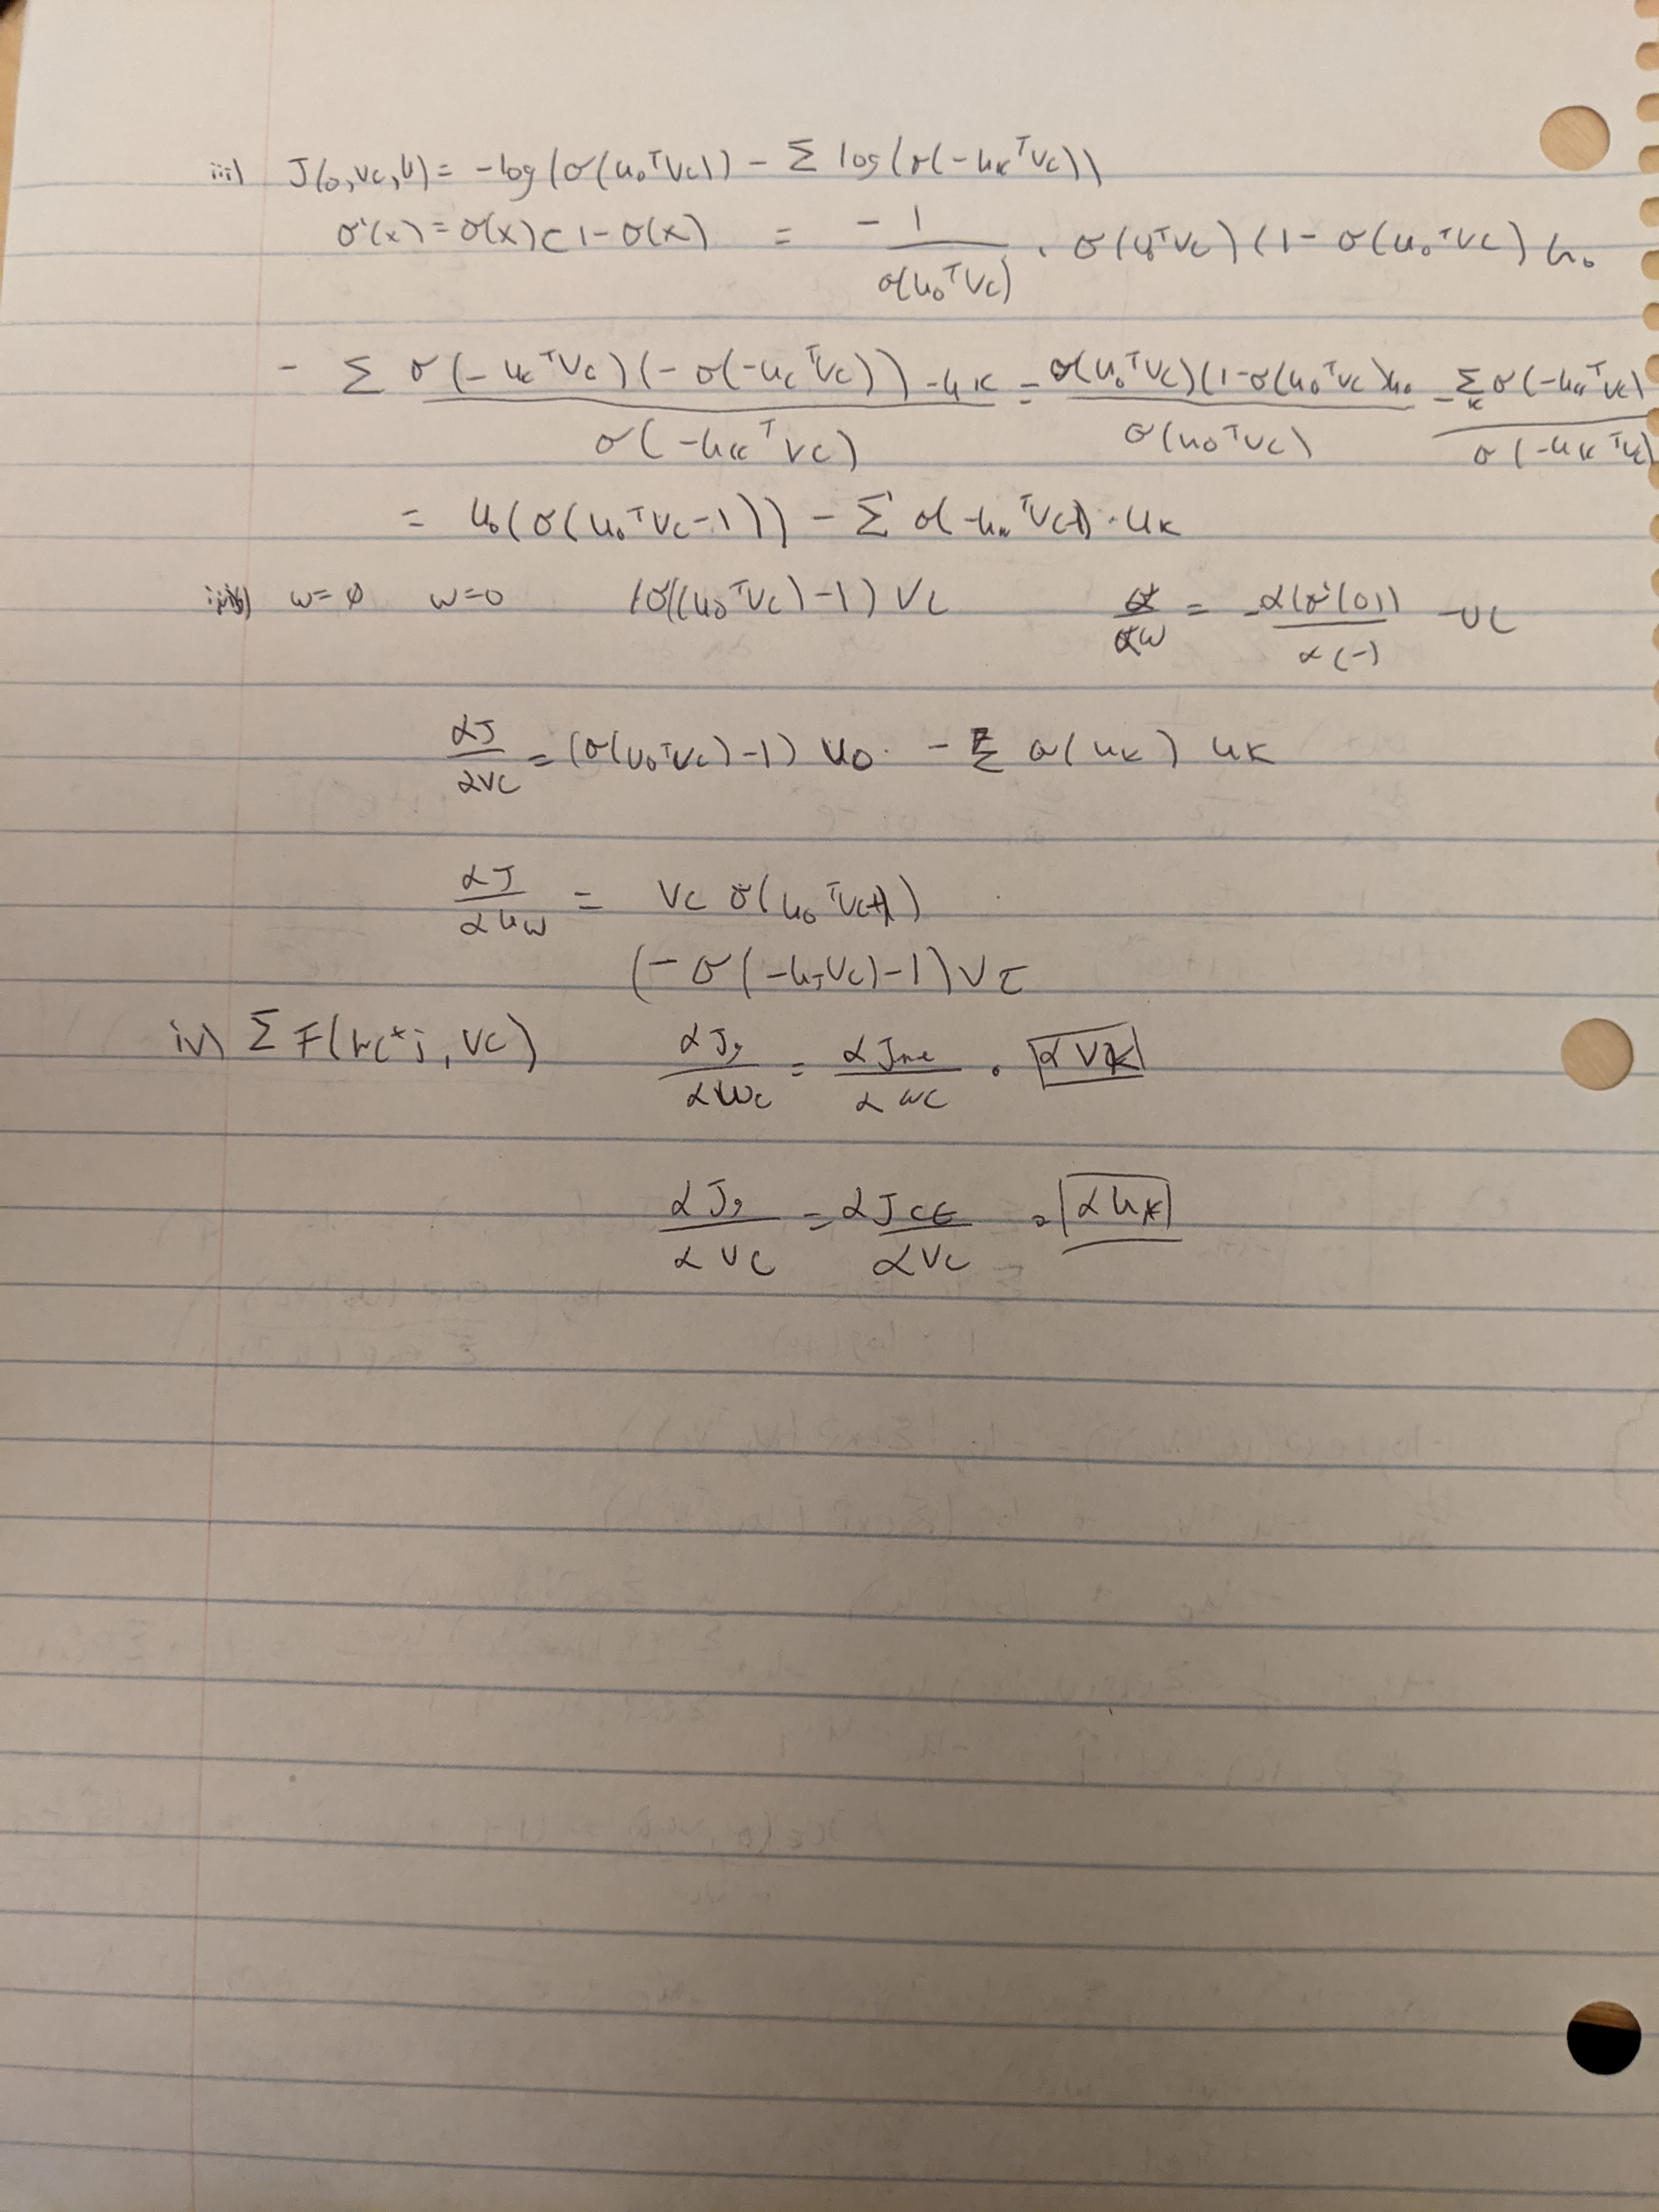 iii) J(o,vc,U) = -log(σ(u₀ᵀvc)) - Σ log(σ(-uₖᵀvc))
σ'(x) = σ(x)(1-σ(x) = -1/σ(u₀ᵀvc) · σ(u₀ᵀvc)(1-σ(u₀ᵀvc) u₀
- Σ σ(-uₖᵀvc)(-σ(-ucᵀvc)) -uₖ / σ(-uₖᵀvc) = σ(u₀ᵀvc)(1-σ(u₀ᵀvc)u₀ / σ(u₀ᵀvc) - Σₖ σ(-uₖᵀvc) / σ(-uₖᵀvc)
= u₀(σ(u₀ᵀvc-1)) - Σ σ(-uₖᵀvc) · uₖ
w=∅ w=0 (σ((u₀ᵀvc)-1) vc = -α(σ'(0)) / α(-) -vc
αJ/αvc = (σ(u₀ᵀvc)-1) u₀ - Σ σ(uₖ) uₖ
αJ/αuw = vc σ(u₀ᵀvc)
(-σ(-uᵀvc)-1)vc
iv) Σ F(wc+j, vc) αJ/αwc = α / αwc · αvk
αJ/αvc = αJCE/αvc · αuk